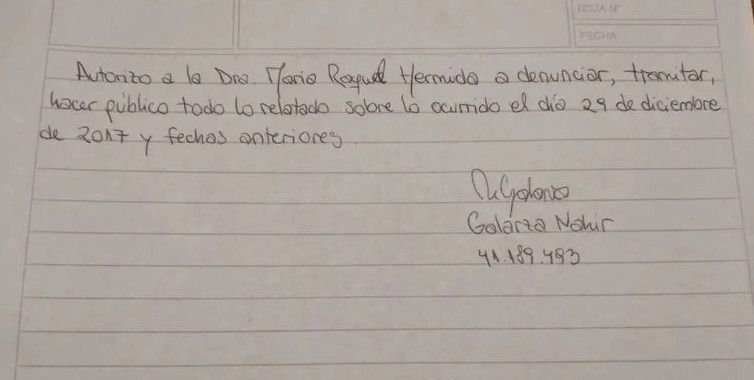 HOJA Nº
FECHA
Autorizo a la Dra. Maria Raquel Hermida a denunciar, tramitar,
hacer público todo lo relatado sobre lo ocurrido el día 29 de diciembre
de 2017 y fechas anteriores.
Galarza Nahir
41.189.493